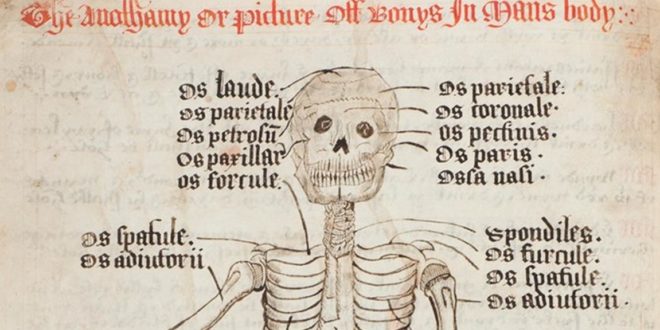 The Anothamy Or Picture Off Bonys In Mans body:
Os laude.
Os parietale
Os petrosū
Os paxillar
os forcule.
Os parietale:
Os coronale·
os pectinis.
Os paris·
Ossa nasi·
Os spatule.
Os adiutorii
Spondiles.
Os furcule.
Os spatule.
Os adiutorii·